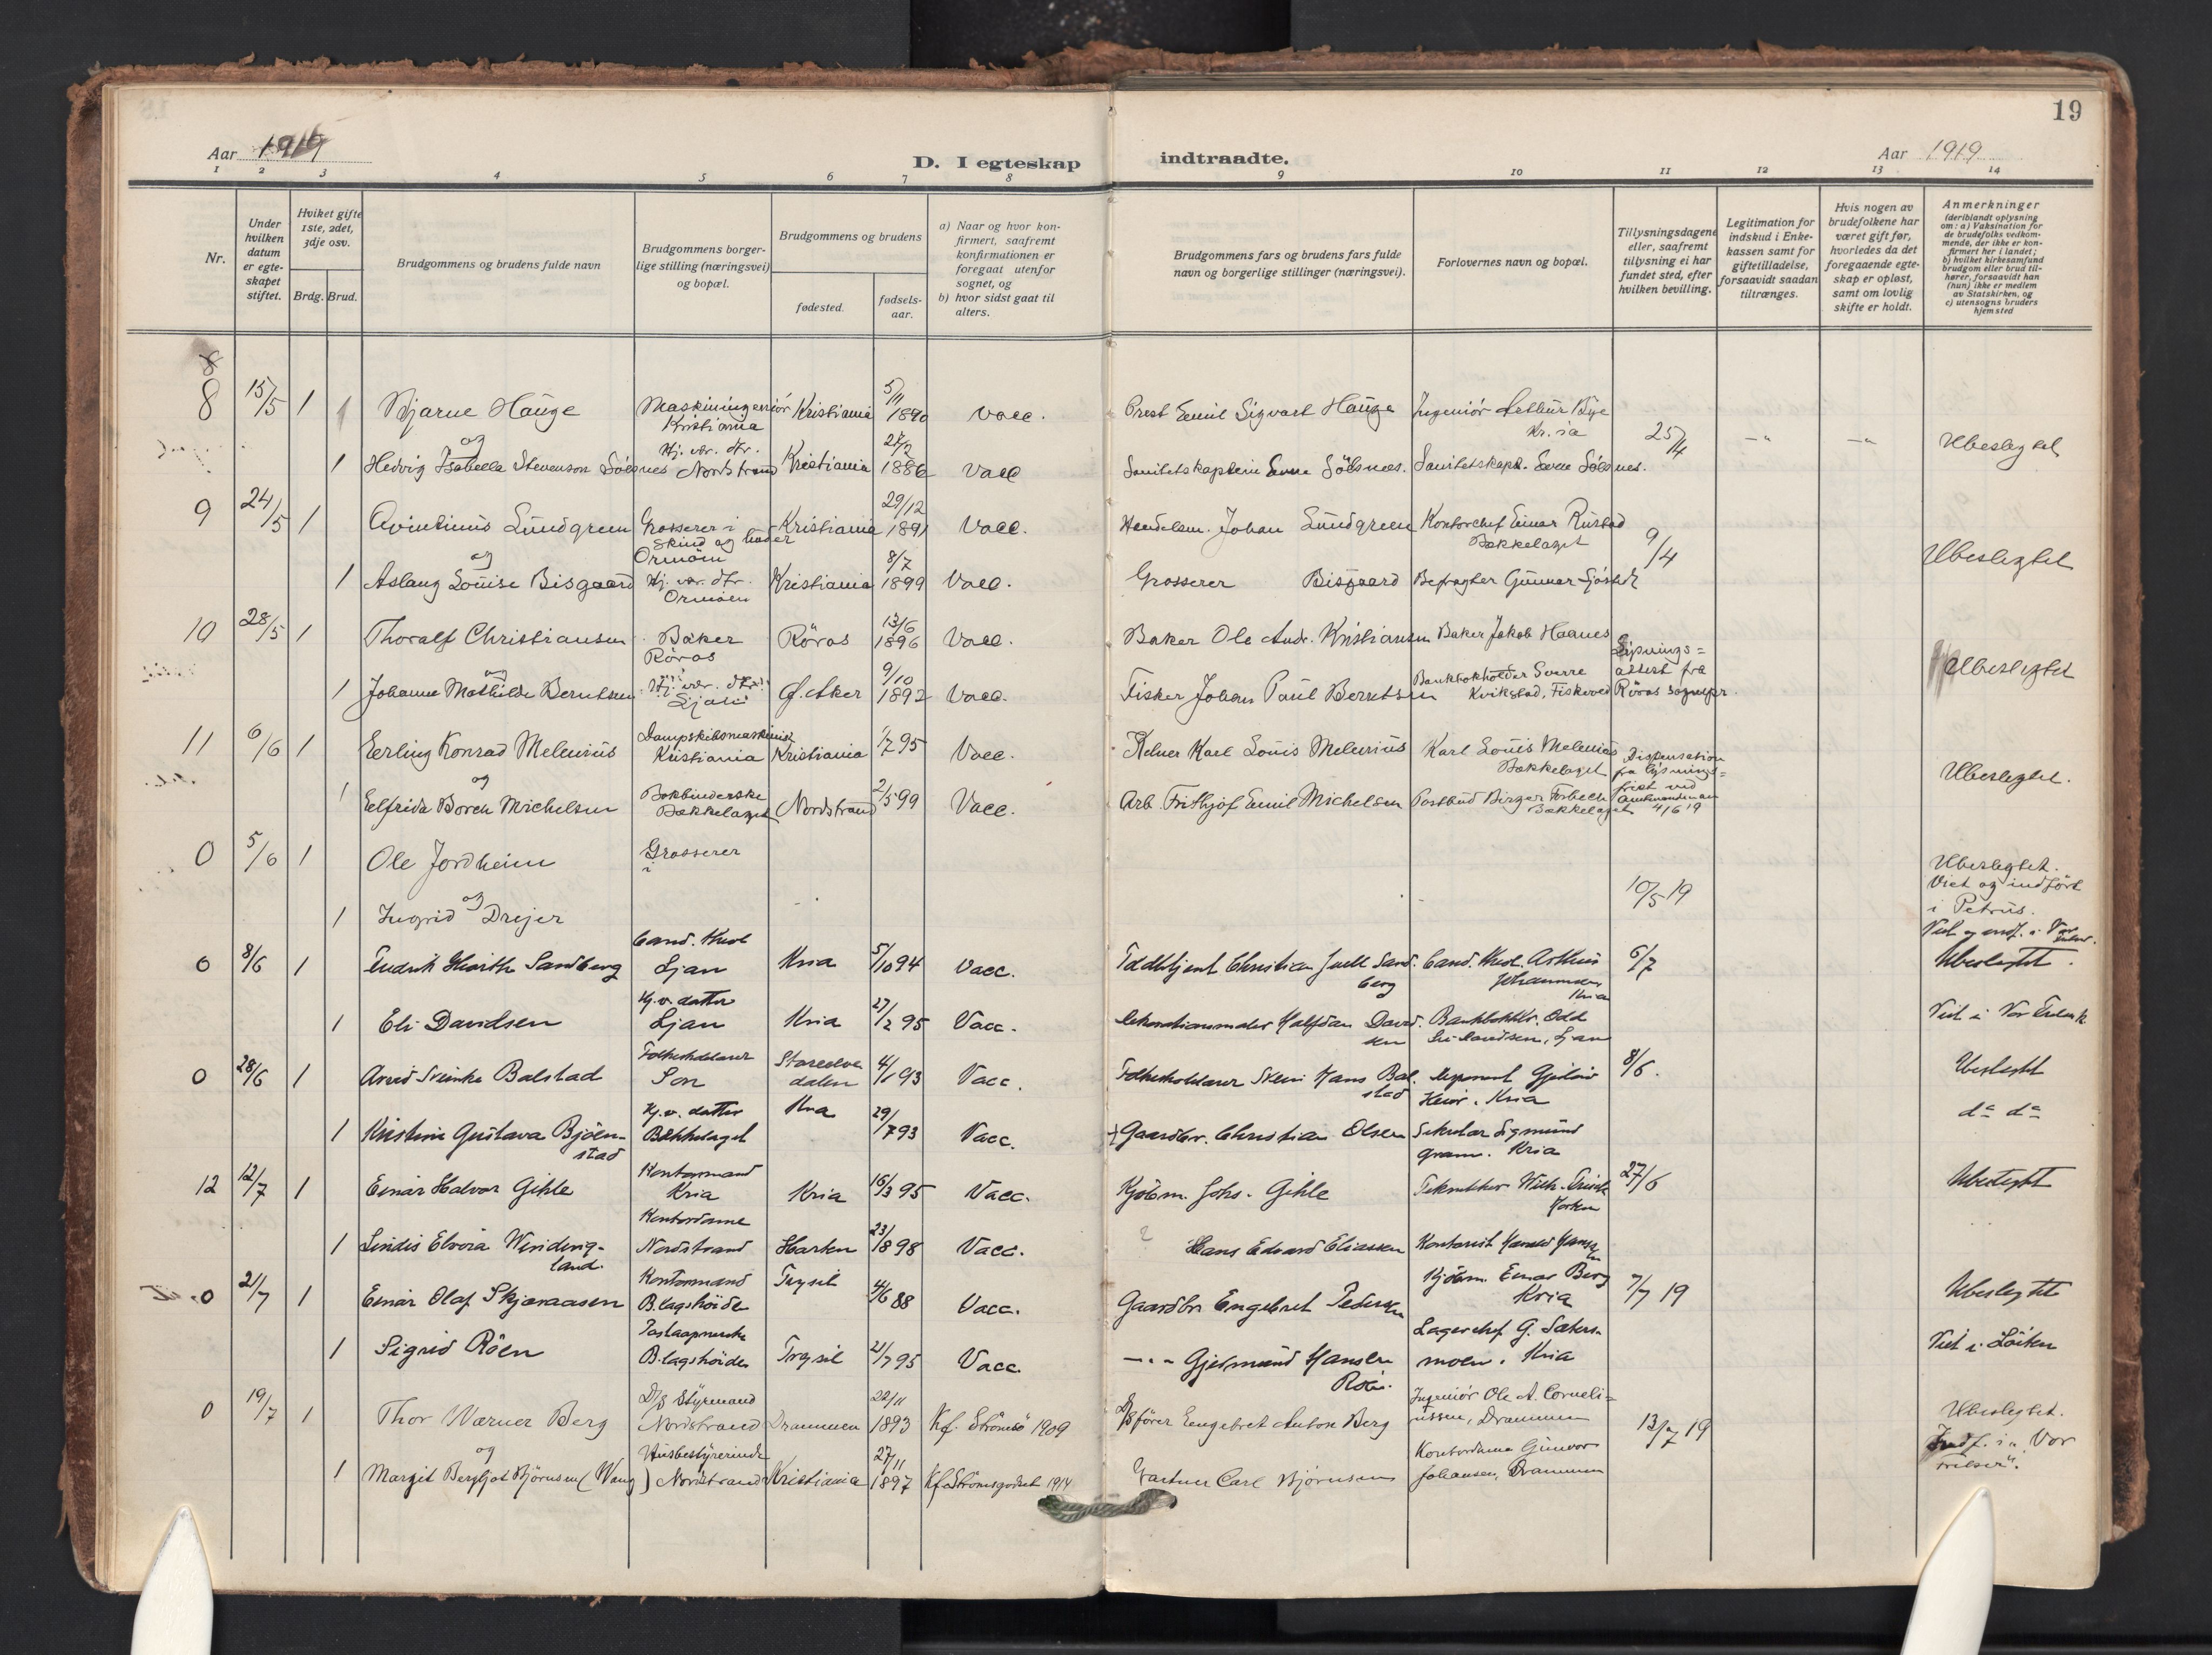 19
Aar 1919
D. I egteskap indtraadte.
Aar 1919
1 2 3 4 5 6 7 8 9 10 11 12 13 14
Nr.
Under hvilken datum er egteskapet stiftet.
Hviket gifte 1ste, 2det, 3dje osv.
Brdg. Brud.
Brudgommens og brudens fulde navn
Brudgommens borgerlige stilling (næringsvei) og bopæl.
Brudgommens og brudens
fødested.
fødselsaar.
a) Naar og hvor konfirmert, saafremt konfirmationen er foregaat utenfor sognet, og
b) hvor sidst gaat til alters.
Brudgommens fars og brudens fars fulde navn og borgerlige stillinger (næringsvei).
Forlovernes navn og bopæl.
Tillysningsdagene eller, saafremt tillysning ei har fundet sted, efter hvilken bevilling.
Legitimation for indskud i Enkekassen samt for giftetilladelse, forsaavidt saadan tiltrænges.
Hvis nogen av brudefolkene har været gift før, hvorledes da det foregaaende egteskap er opløst, samt om lovlig skifte er holdt.
Anmerkninger
(deriblandt oplysning om: a) Vaksination for de brudefolks vedkommende, der ikke er konfirmert her i landet; b) hvilket kirkesamfund brudgom eller brud tilhører, forsaavidt han (hun) ikke er medlem av Statskirken, og c) utensogns bruders hjemsted
8 15/5 1 Bjarne Hauge Maskiningeniör Kristiania Kristiania 5/11 1890 Vacc. Prest Emil Sigvart Hauge Ingeniör Arthur Bye Kr.ia 25/4 -"- -"- Ubeslegtet
og
1 Hedvig Isabella Stevenson Sölsnes Hj. vær. dtr. Nordstrand Kristiania 1886 Vacc Sanitetskaptein Sölsnes. Sanitetskapt. Sölsnes.
9 24/5 1 Qvintinus Lundgreen Grosserer i skind og huder Ormöen Kristiania 29/12 1891 Vacc. Handelsm. Johan Lundgreen Kontorchef Einar Rustad Bækkelaget 9/4 Ubeslegtet
og
1 Aslaug Louise Bisgaard Hj. vær. dtr. Ormöen Kristiania 8/7 1899 Vacc. Grosserer Bisgaard Befragter Gunnar Sjöstedt
10 28/5 1 Thoralf Christiansen Baker Röros Röros 13/6 1896 Vacc. Baker Ole Andr. Kristiansen Baker Jakob Haanes Lysningsattest fra Röros sognepr. Ubeslegtet
og
1 Johanne Mathilde Berntsen Hj. vær. dtr. Ljan Ø. Aker 9/10 1892 Vacc. Fisker Johan Paul Berntsen Bankbokholder Sverre Kvikstad, Fiskvoll
11 6/6 1 Erling Konrad Melenius Dampskibsmaskinist Kristiania Kristiania 95 Vacc. Kelner Karl Louis Melenius Karl Louis Melenius Bækkelaget Dispensation fra lysningsfrist ved 4/6 19 Ubeslegtet.
og
1 Elfrida Borch Michelsen Bokbinderske Bækkelaget Nordstrand 2/5 99 Vacc. Arb. Frithjof Emil Michelsen Postbud Birger Torbeck Bækkelaget
0 5/6 1 Ole Jordheim Grosserer i 10/5 19 Ubeslegtet. Viet og indfört i Petrus.
og
1 Ingrid Drejer
0 8/6 1 Fredrik Hiorth Sandberg Cand. theol Ljan Kria 5/10 94 Vacc. Toldbetjent Christian Juell Sandberg Cand. theol. Arthur Johannesen Kria 6/7 Ubeslegtet.
1 Eli Davidsen Hj. v. datter Ljan Kria 27/2 95 Vacc. Dekorationsmaler Halfdan Davidsen Bankbokhl. Odd Ljan Viet i Vor Frelser k.
0 28/6 1 Arvid Sveinke Balstad Folkeskolelærer Son Storelvedalen 4/1 93 Vacc. Folkeskolelærer Svein Hans Balstad Kria 8/6. Ubeslegtet
1 Kristine Gustava Bjöenstad Hj. v. datter Bækkelaget Kria 29/7 93 Vacc. + Gaardbr. Christian Olsen Sekretær Sigmund Gram. Kria do do
12 12/7 1 Einar Halvor Gihle Kontormand Kria Kria 16/3 95 Vacc. Kjöbm. Johs. Gihle 27/6 Ubeslegtet
1 Lindis Elvora Windingland. Kontordame Nordstrand 23/1 98 Vacc. Hans Edvard Eliassen Kontorist Harald Hansen
0 21/7 1 Einar Olaf Skjæraasen Kontormand B.lagshöiden Trysil 4/6 88 Vacc. Gaardbr. Engebret Pedersen Kjöbm. Einar Berg Kria 7/7 19 Ubeslegtet
1 Sigrid Röen Postaapnerske B.lagshöiden Trysil 21/7 95 Vacc. -"- Gjermund Hansen Röen. Lagerchef G. Sætersmoen. Kria Viet i Löiten
0 19/7 1 Thor Werner Berg D/S Styrmand Nordstrand Drammen 22/11 1893 Kf. Strömsö 1909 D/S förer Engebret Anton Berg Ingeniör Ole A. Corneliussen, Drammen 13/7 19 Ubeslegtet. Indf. i "Vor Frelser".
og
1 Margit Bergljot Björnsen (Wang) Husbestyrerinde Nordstrand Kristiania 27/11 1897 Kf. Strömsgodset 1914 Gartner Carl Björnsen Kontordame Gunvor Johansen, Drammen